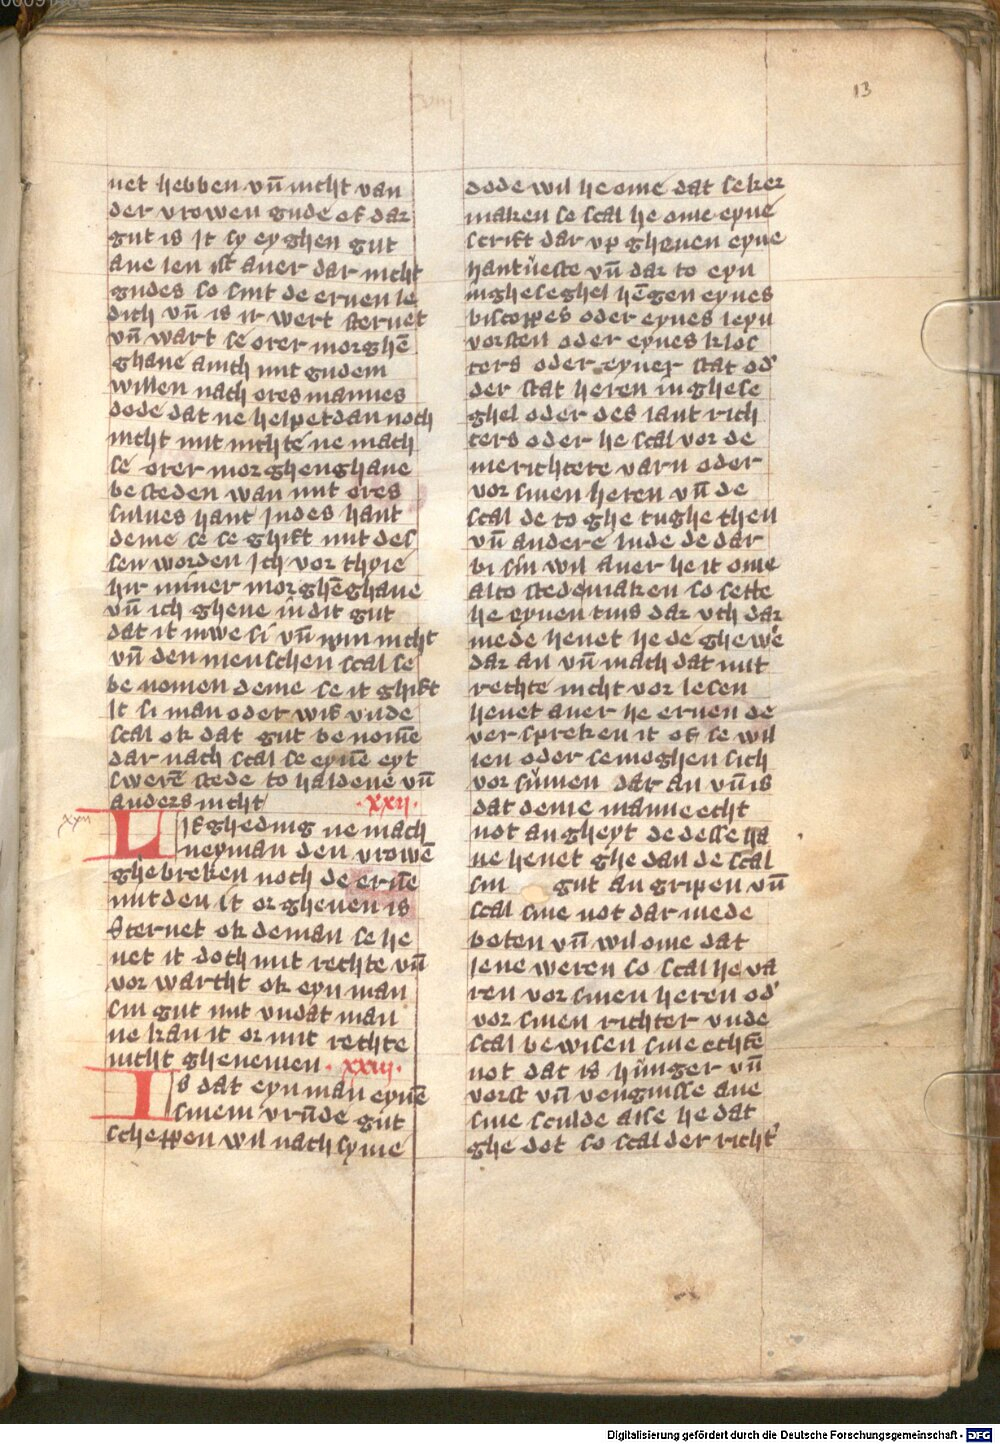 13
net hebben vn̄ nicht van
der vrowen gude of dar
gut is Jt sy eyghen gut
aue len ist auer dar nicht
gudes so sint de eruen le
dich vn̄ is ir wert steruet
vn̄ wart se orer morghē
ghaue ainch mit gudem
willen nach ores mannes
dode dat ne helpet dan noch
nicht mit nichte ne mach
se orer morghenghaue
besteden wan mit ores
sulues hant Jndes hant
deme se se ghift mit des
sen worden Jch vor thyie
hir miner morghēghaue
vn̄ ich gheue in dit gut
dat it inwe si vn̄ myn nicht
vn̄ den menschen scal se
be nomen deme se it ghift
Jt si man oder wif vnde
scal ok dat gut benomē
dar nach scal se eynē eyt
swerē stede to haldene vn̄
anders nicht .xxij.
xxii
Lifgheding ne mach
neyman den vrowē
ghebreken noch de eruē
mit den it or gheuen is
Steruet ok de man se he
uet it doch mit rechte vn̄
vor warcht ok eyn man
sin gut mit vndat man
ne kan it or mit rechte
nicht ghenemen .xxiij.
Is dat eyn man eynē
sinem vrūde gut
scheppen wil nach syme
dode wil he ome dat seker
maken so scal he ome eyne
scrift dar vp gheuen eyne
hantueste vn̄ dar to eyn
ingheseghel hēgen eynes
biscoppes oder eynes leyn
vorsten oder eynes klos
ters oder eyner stat od'
der stat heren inghese
ghel oder des lant rich
ters oder he scal vor de
merichtere varn oder
vor sinen heren vn̄ de
scal de to ghe tughe then
vn̄ andere lude de dar
bi sin wil auer he it ome
also stede maken so sette
he eynen tins dar vth dar
mede heuet he de ghewē
dar an vn̄ mach dat mit
rechte nicht vor lesen
heuet auer he eruen de
ver spreken it of se wil
len oder se moghen sich
vor sumen dar an vn̄ is
dat deme manne echt
not an gheyt de desse ha
ne heuet ghe dan de scal
sin gut an gripen vn̄
scal sine not dar mede
boten vn̄ wil ome dat
jene weren so scal he va
ren vor sinen heren od'
vor sinen richter vnde
scal bewisen sine echtē
not dat is hunger vn̄
vorst vn̄ vengnisse ane
sine sculde alse he dat
ghe dot so scal der richt'
Digitalisierung gefördert durch die Deutsche Forschungsgemeinschaft - DFG